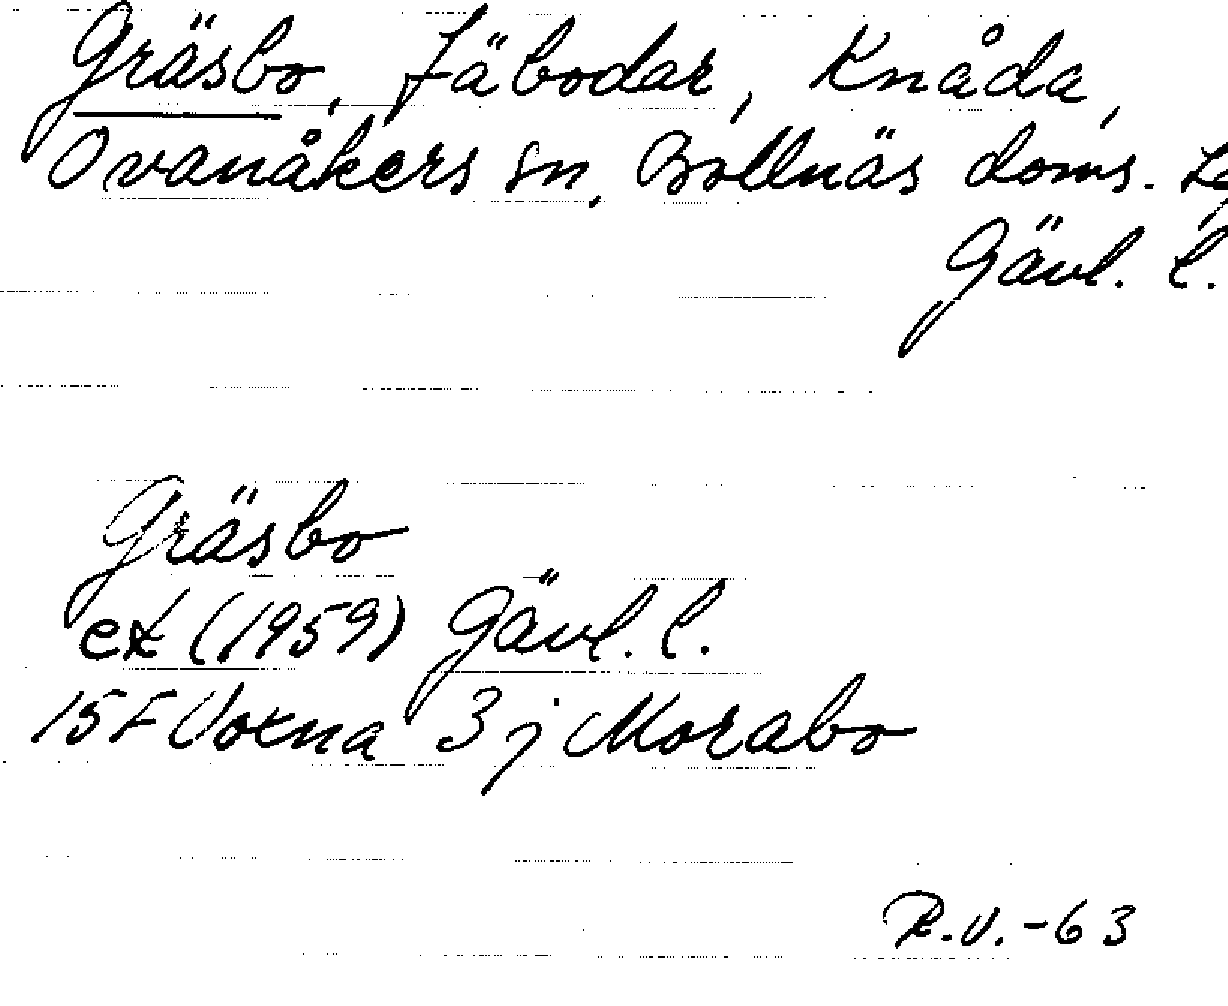 Gräsbo, Fäbodar, Knåda,
Ovanåkers sn, Bollnäs doms.
Gävl. l.
Gräsbo
ek (1959) Gävl. l.
15F Voxna 3j Morabo
R.V.-63